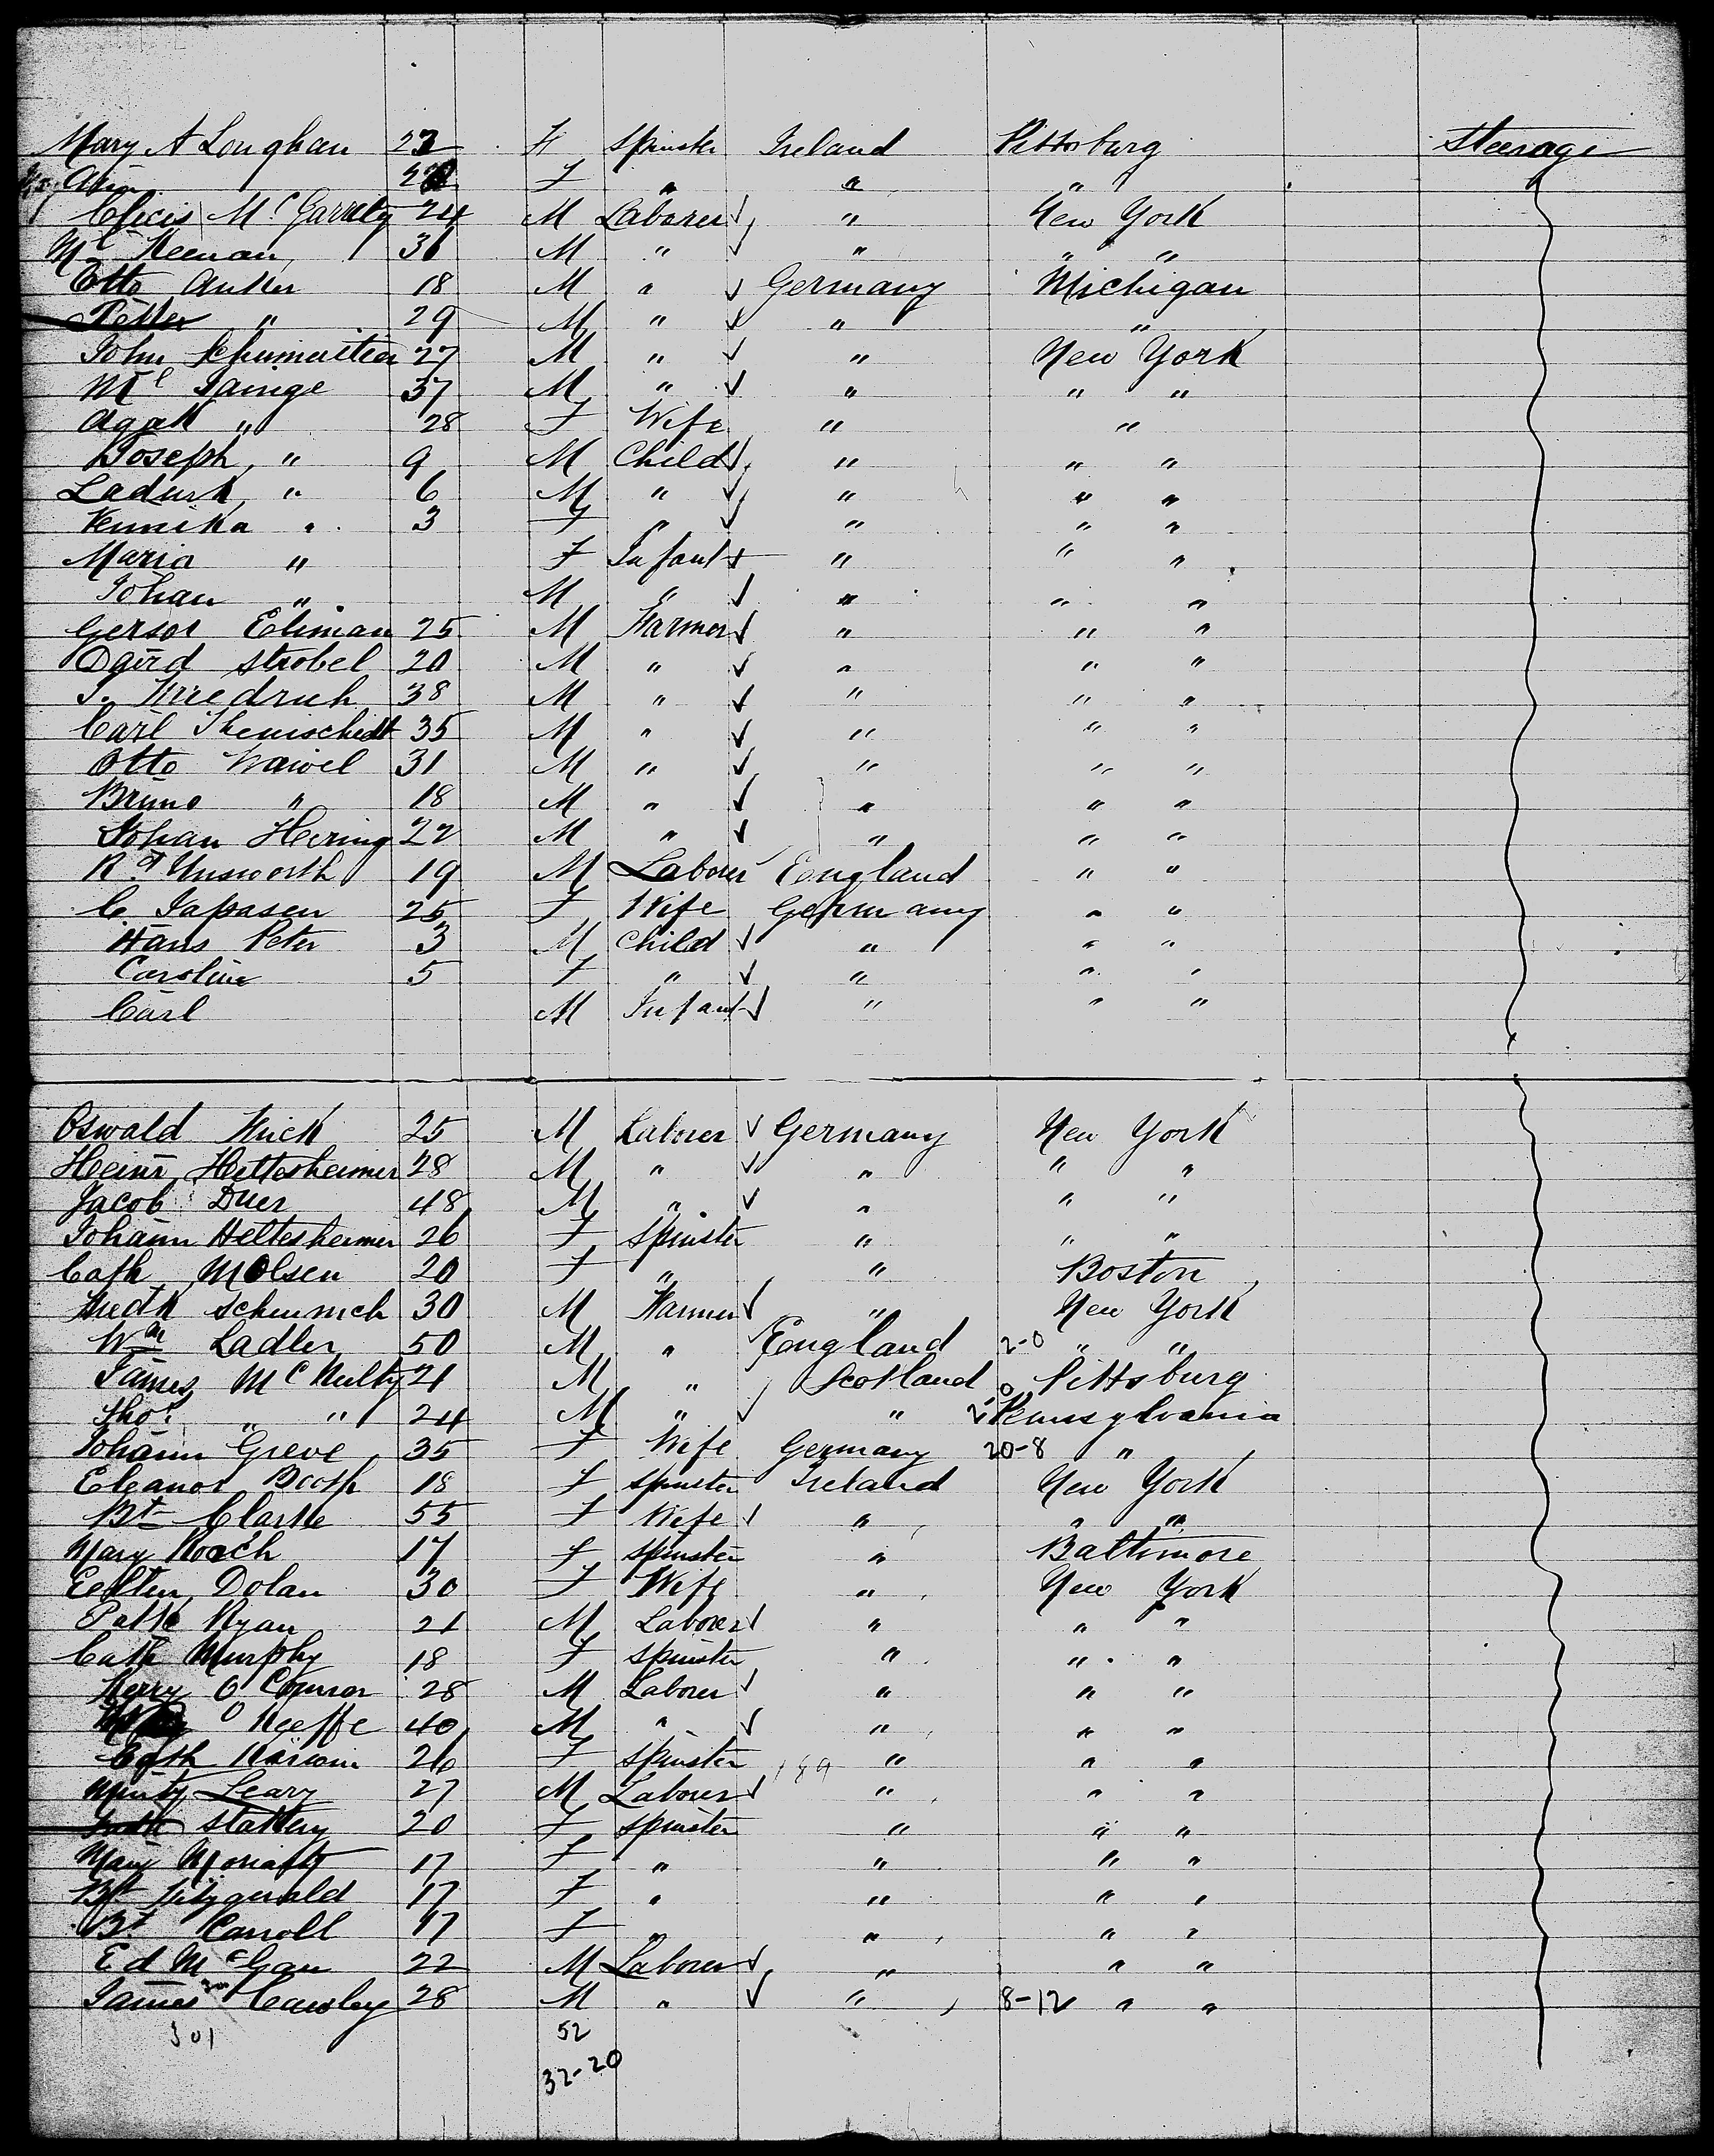 Mary A Loughan 23 F Spinster Ireland Pittsburg Steerage
Ann F " " "
McGarrity 24 M Laborer " New York
Ml Keenan 36 M " " " "
Otto Anker 18 M " Germany Michigan
Petter " 29 M " " "
John 27 M " " New York
Ml Tainge 37 M " " " "
Agak " 28 F Wife " "
Joseph " 9 M Child " " "
Ladurk " 6 M " " " "
Vennika " 3 F " " " "
Maria " F Infant " " "
Johan " M " " " "
Gersot Eliman 25 M Farmer " " "
Strobel 20 M " " " "
Friedrich 38 M " " " "
Carl 35 M " " " "
Otto Wawel 31 M " " " "
Bruno " 18 M " " " "
Johan Hering 22 M " " " "
Rd Unsworth 19 M Laborer England " "
C. Japasen 25 F Wife Germany " "
Hans Peter 3 M Child " " "
Caroline 5 F " " " "
Carl M Infant " " "
Oswald Frick 25 M Laborer Germany New York
Heinr Hettesheimer 28 M " " " "
Jacob Duer 48 M " " " "
Johann Hettesheimer 26 F Spinster " " "
Cath Molsen 20 F " " Boston
Fredk 30 M Farmer " New York
Wm Ladler 50 M " England 2-0 " "
James McNulty 21 M " Scotland 0 Pittsburg
Thos " " 24 M " " 2 Pennsylvania
Johann Greve 35 F Wife Germany 20-8 "
Eleanor Booth 18 F Spinster Ireland New York
Bt Clarke 55 F Wife " " "
Mary Roach 17 F Spinster " Baltimore
Ellen Dolan 30 F Wife " New York
Patk Ryan 21 M Laborer " " "
Cath Murphy 18 F Spinster " " "
Kerry O Connor 28 M Laborer " " "
O Keeffe 40 M " " " "
Cath 26 F Spinster 189 " " "
Leary 27 M Laborer " " "
Slattery 20 F Spinster " " "
Mary Moriarty 17 F " " " "
Bt Fitzgerald 17 F " " " "
Bt Carroll 17 F " " " "
Ed McGan 22 M Laborer " " "
James Cawley 28 M " " 8-12 " "
301 52
32-20